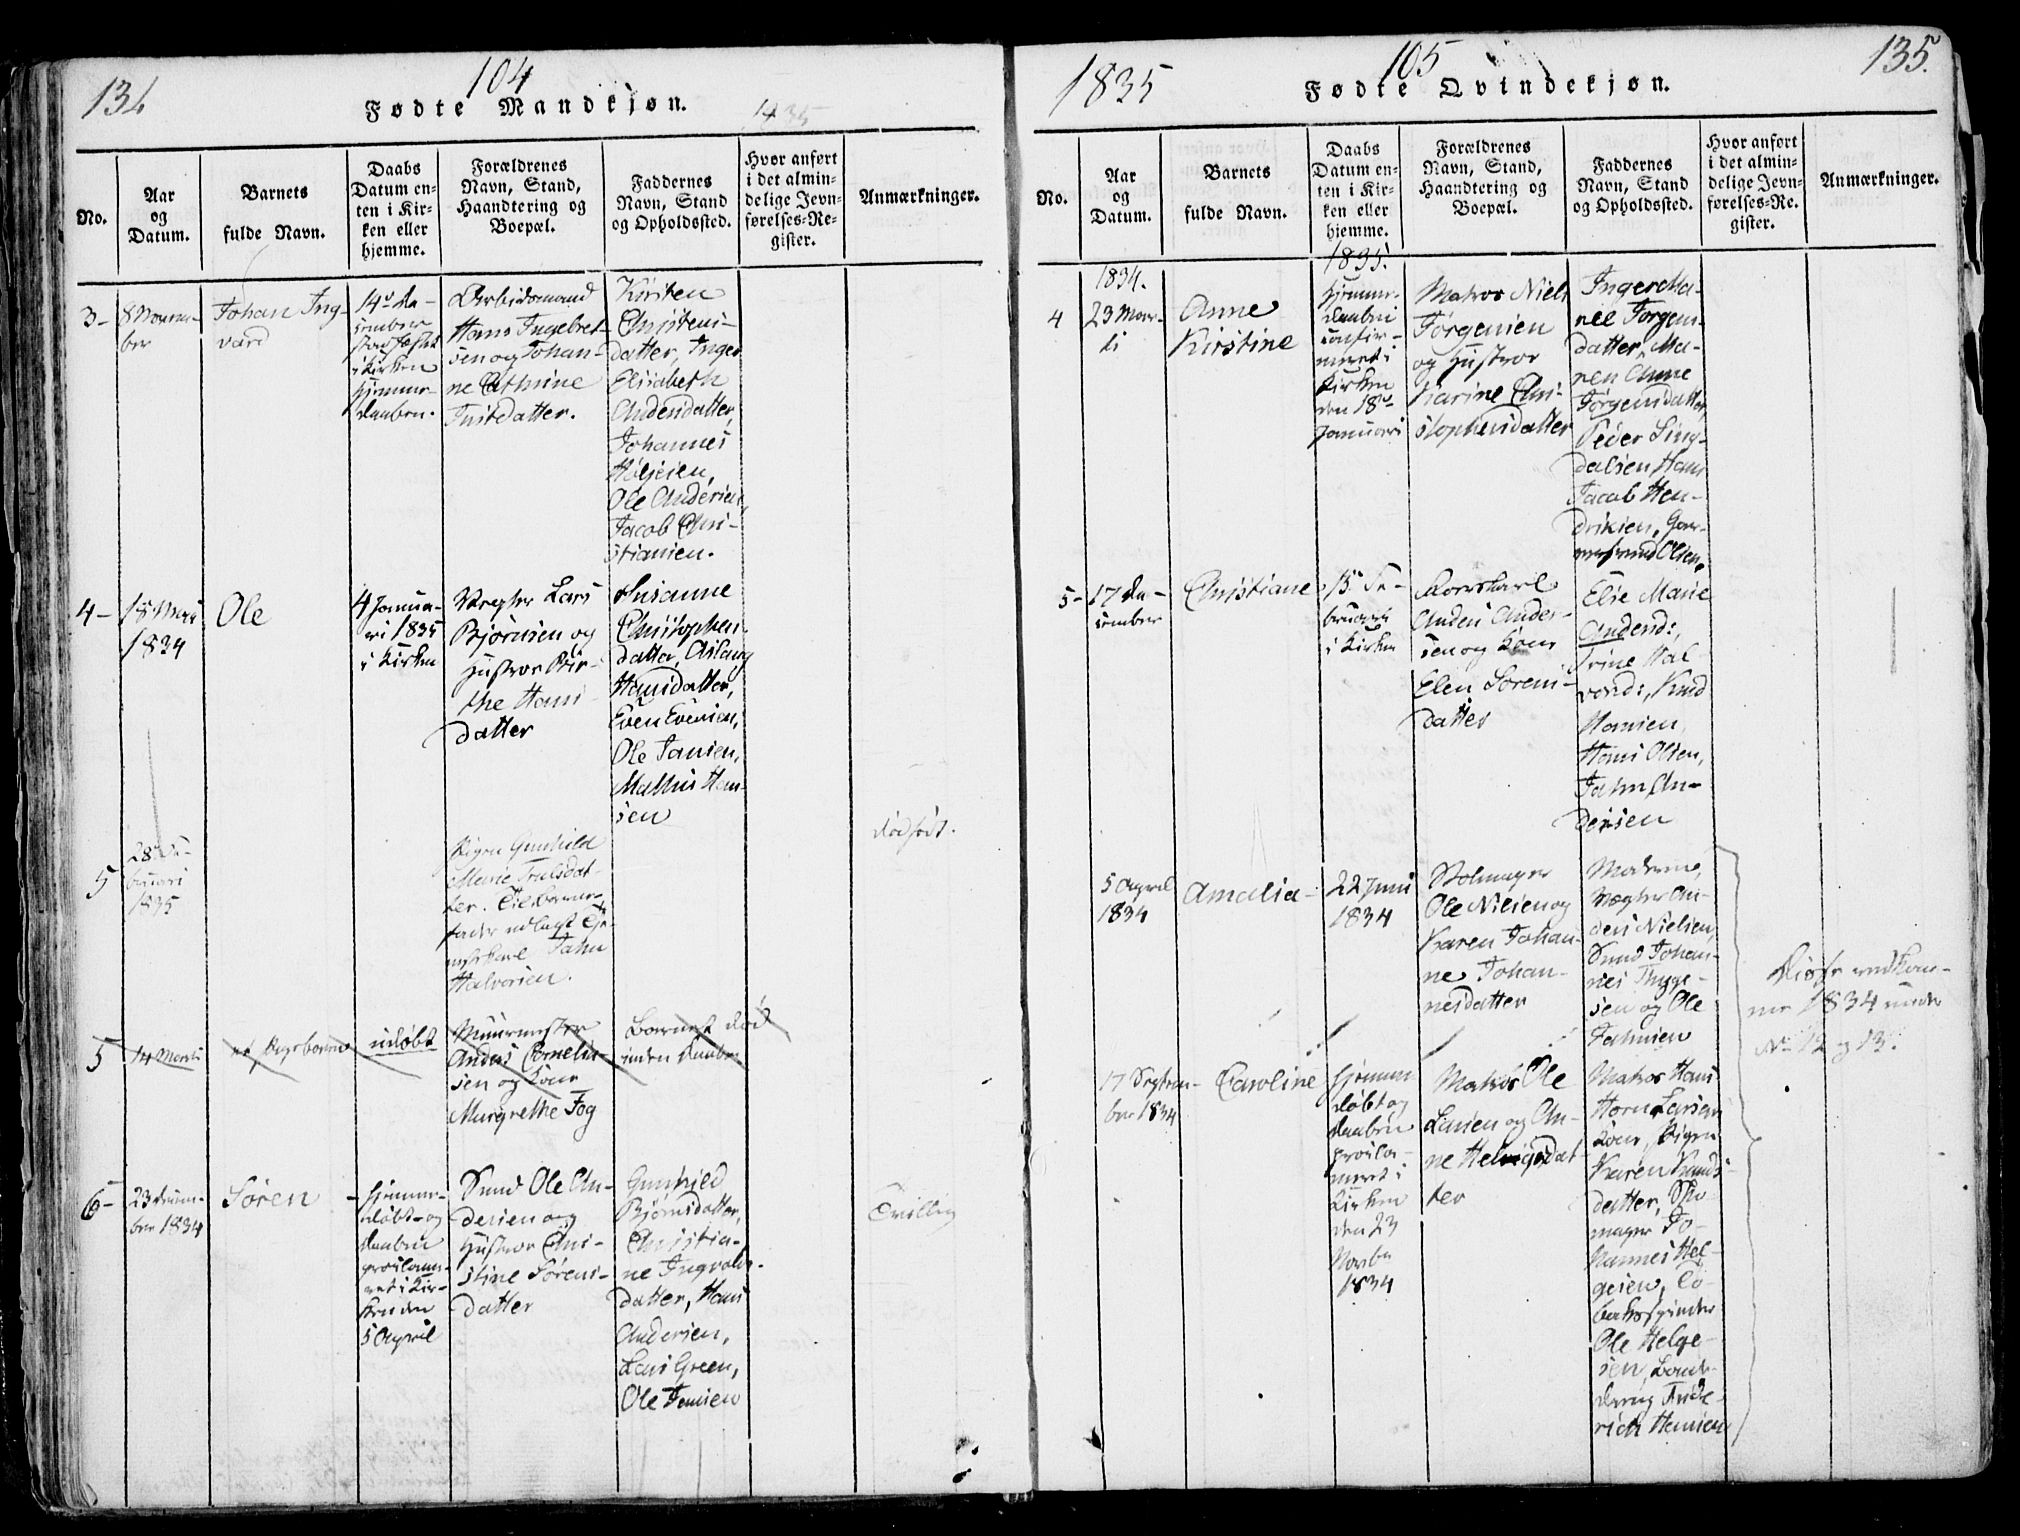 134
104
Fødte Mandkjøn.
1835
No.
Aar
og
Datum.
Barnets
fulde Navn.
Daabs
Datum en-
ten i Kir-
ken eller
hjemme.
Forældrenes
Navn, Stand,
Haandtering og
Boepæl.
Faddernes
Navn, Stand
og Opholdssted.
Hvor anført
i det almin-
delige Jevn-
førelses-Re-
gister.
Anmærkninger.
3-
8 Novem-
ber
Johan Ing-
vard
14de De-
cember
i Kirken
hjemme-
daaben.
Arbeidsmand
Hans Ingebret-
sen og Johan-
ne Cathrine
datter.
Kirsten
Christens-
datter, Inger
Elisabeth
Andersdatter,
Johannes
Ole Andersen,
Jacob Chri-
stiansen.
4-
18 Mai
1834
Ole
4 Janua-
ri 1835
i Kirken
Vægter Lars
Bjørnsen og
Hustroe Bir-
the Hans-
datter
Susanne
Christophers-
datter, Aslaug
Hansdatter,
Even Evensen,
Ole Jansen,
Mathis Han-
sen
5
28 Fe-
bruari
1835
Pigen Gunhild
Marie Trulsdat-
ter. Til Barne-
fader udlagt Tje-
nestekarl Jahn
Halvorsen.
dødfødt.
5
14 Marti
et Pigebarn
udøbt
Muurmester
Anders Cornelius-
sen og Kone
Margrethe Fog
Barnet død
inden Daaben
6-
23 Decem-
ber 1834
Søren
hjemme-
døbt og
Daaben
proclame-
ret i Kir-
ken den
5 April
Smed Ole An-
dersen og
Hustroe Chri-
stine Sørens-
datter
Gunhild
Bjørnsdatter,
Christia-
ne Ingvalds-
datter, Hans
Andersen,
Lars Green,
Ole Jansen
Tvilling
1835
105
Fødte Qvindekjøn.
135.
No.
Aar
og
Datum.
Barnets
fulde Navn.
Daabs
Datum en-
ten i Kir-
ken eller
hjemme.
Forældrenes
Navn, Stand,
Haandtering og
Boepæl.
Faddernes
Navn, Stand
og Opholdssted.
Hvor anført
i det almin-
delige Jevn-
førelses-Re-
gister.
Anmærkninger.
1834.
1835.
4
23 Mar-
ti
Anne
Kirstine
Hjemme-
daaben
confir-
meret i
Kirken
den 18de
Januari
Matros Niels
Jørgensen
og Hustroe
Karine Chri-
stophersdatter
Inger Ma-
rie Jørgens-
datter, Ma-
ren Anne
Jørgensdatter,
Peder Ling-
dalsen, Hans
Jacob Hen-
driksen,
Olsen.
5-
17 De-
cember
Christiane
15 Fe-
bruari
i Kirken
Anders Ander-
sen og Kone
Elen Sørens-
datter
Else Marie
Andersd:,
Trine Hal-
vord:, Knud
Hansen,
Hans Olsen,
Jahn An-
dersen
5 April
1834
Amalia
22 Juni
1834
Stolmager
Ole Nilsen og
Karen Johan-
ne Johan-
nesdatter
Moderen,
Vægter An-
ders Nielsen,
Smed Johan-
nes Thyge-
sen og Ole
Jahnsen
Disse vedkom-
me 1834 under
No 12 og 13.
17 Septem-
ber 1834
Caroline
hjemme-
døbt og
Daaben
procla-
meret i
Kirken
den 23
Novbr
1834
Matros Ole
Larsen og An-
ne Helvigsdat-
ter
Matros Hans
Horn Larsen
Kone, Pigen
Karen Knuds-
datter, Sko-
mager Jo-
hannes Hel-
gesen, To-
baksspinder
Ole Helge-
sen,
Fride-
rich Hansen